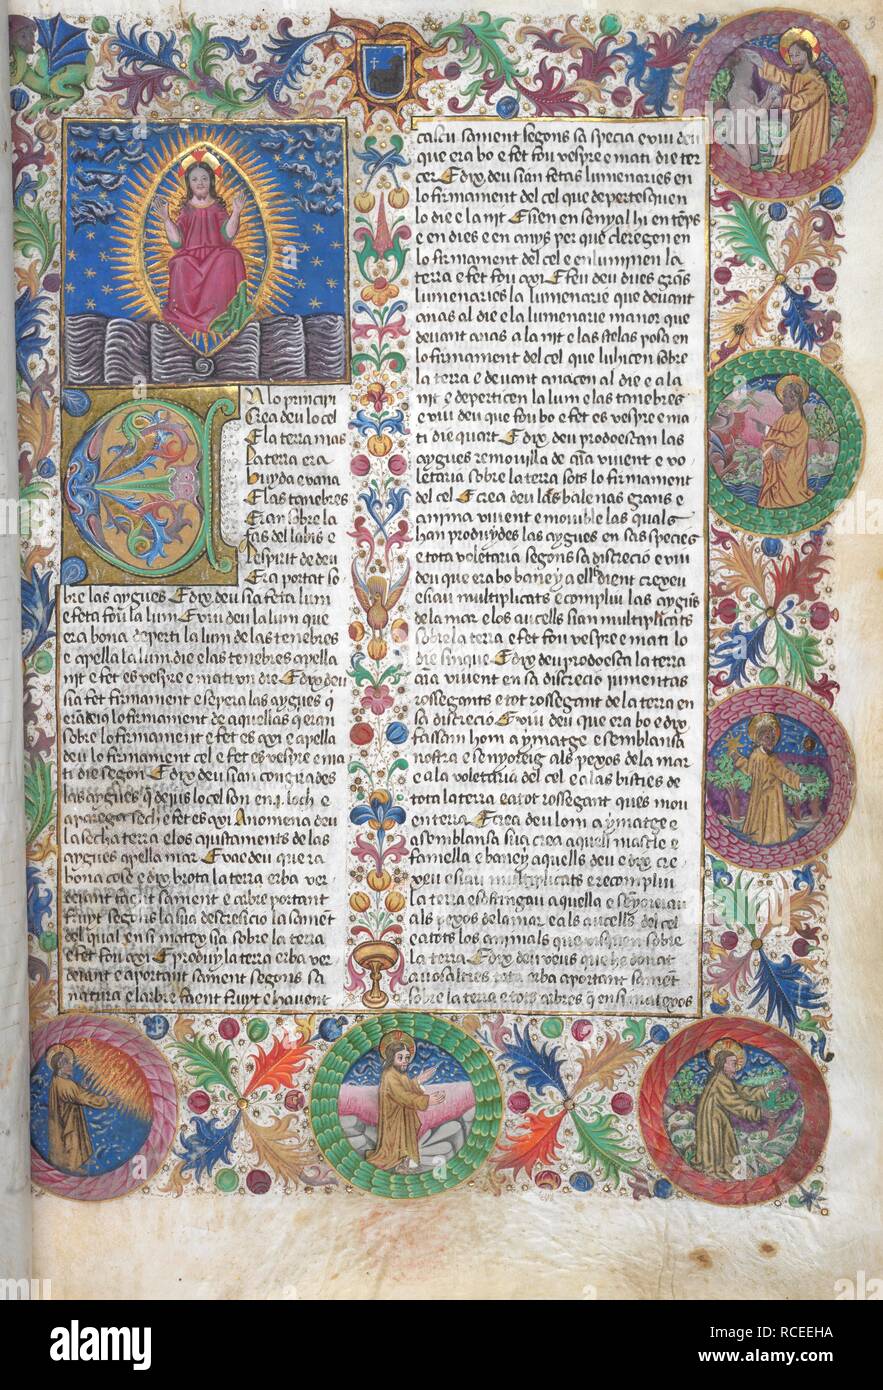 En lo principi
Crea deu lo cel
E la terra mas
la terra era
buyda e vana
E las tenebres
Eran sobre la
fas del labis e
lespirit de deu
Era portat so
bre las aygues E dix deu sia feta lum
e feta fou la lum E viu deu la lum que
era bona departi la lum de las tenebres
e apella la lum die e las tenebres apella
nit e fet es vespre e mati vn die E dix deu
sia fet firmament e sepera las aygues q̄
erā deius lo firmament de aquellas q̄ eran
sobre lo firmament e fet es axi e apella
deu lo firmament cel e fet es vespre e ma
ti die segon E dix deu sian congregades
las aygues q̄ deius lo cel son en .j. loch e
aparega sech e fet es axi Anomena deu
la secha terra e los aiustaments de las
aygues apella mar E viu deu que era
bona cose e dix brota la terra erba ver
deiant faent sament e arbre portant
fruyt segons la sua descresicio la samēt
del qual en si matex sia sobre la terra
e fet fou axi E produy la terra erba ver
deiant e aportant sament segons sa
natura e larbre faent fruyt e havent
cascu sament segons sa specia e viu deu
que era bo e fet fou vespre e mati die ter
cer E dix deu sian fetas lumenaries en
lo firmament del cel que departesquen
lo die e la nit E sien en senyal hi en tēps
e en dies e en anys per que claregen en
lo firmament del cel e enlluminen la
terra e fet fou axi E feu deu dues grās
lumenaries la lumenarie que deuant
anas al die e la lumenarie manor que
deuant anas a la nit e las stelas posa en
lo firmament del cel que luhicen sobre
la terra e deuant anacen al die e a la
nit e departicen la lum e las tanebras
e viu deu que fou bo e fet es vespre e ma
ti die quart E dix deu prodoescan las
aygues removilla de aīa vivent e vo
letaria sobre la terra sots lo firmament
del cel E crea deu las balenas grans e
anima vivent e movible las quals
han produydes las aygues en sas species
e tota voletaria segons sa discrecio e viu
deu que era bo baney a ells dient crexeu
e siau multiplicats e compliu las aygues
de la mar e los aucells sian multiplicats
sobre la terra e fet fou vespre e mati lo
die sinque E dix deu prodoesca la terra
aīa vivent en sa discrecio iumentas
rossegants e tot rossegant de la terra en
sa discrecio E viu deu que era bo e dix
fassam hom a ymatge e semblansa
nostra e senyoreig als pexos de la mar
e a la voletaria del cel e a las bisties de
tota la terra e a tot rossegant ques mou
en terra E crea deu lom a ymatge e
a semblansa sua crea aquell mascle e
famella e baney aquells deu e dix cre
xeu e siau multiplicats e recompliu
la terra e
als pexos de la mar e als aucells del cel
e a tots los animals que visquen sobre
la terra E dix deu veus que he donat
a vosaltres tota erba aportant samēt
sobre la terra e tots arbres q̄ en si matexos
3
alamy
Image ID: RCEEHA
www.alamy.com